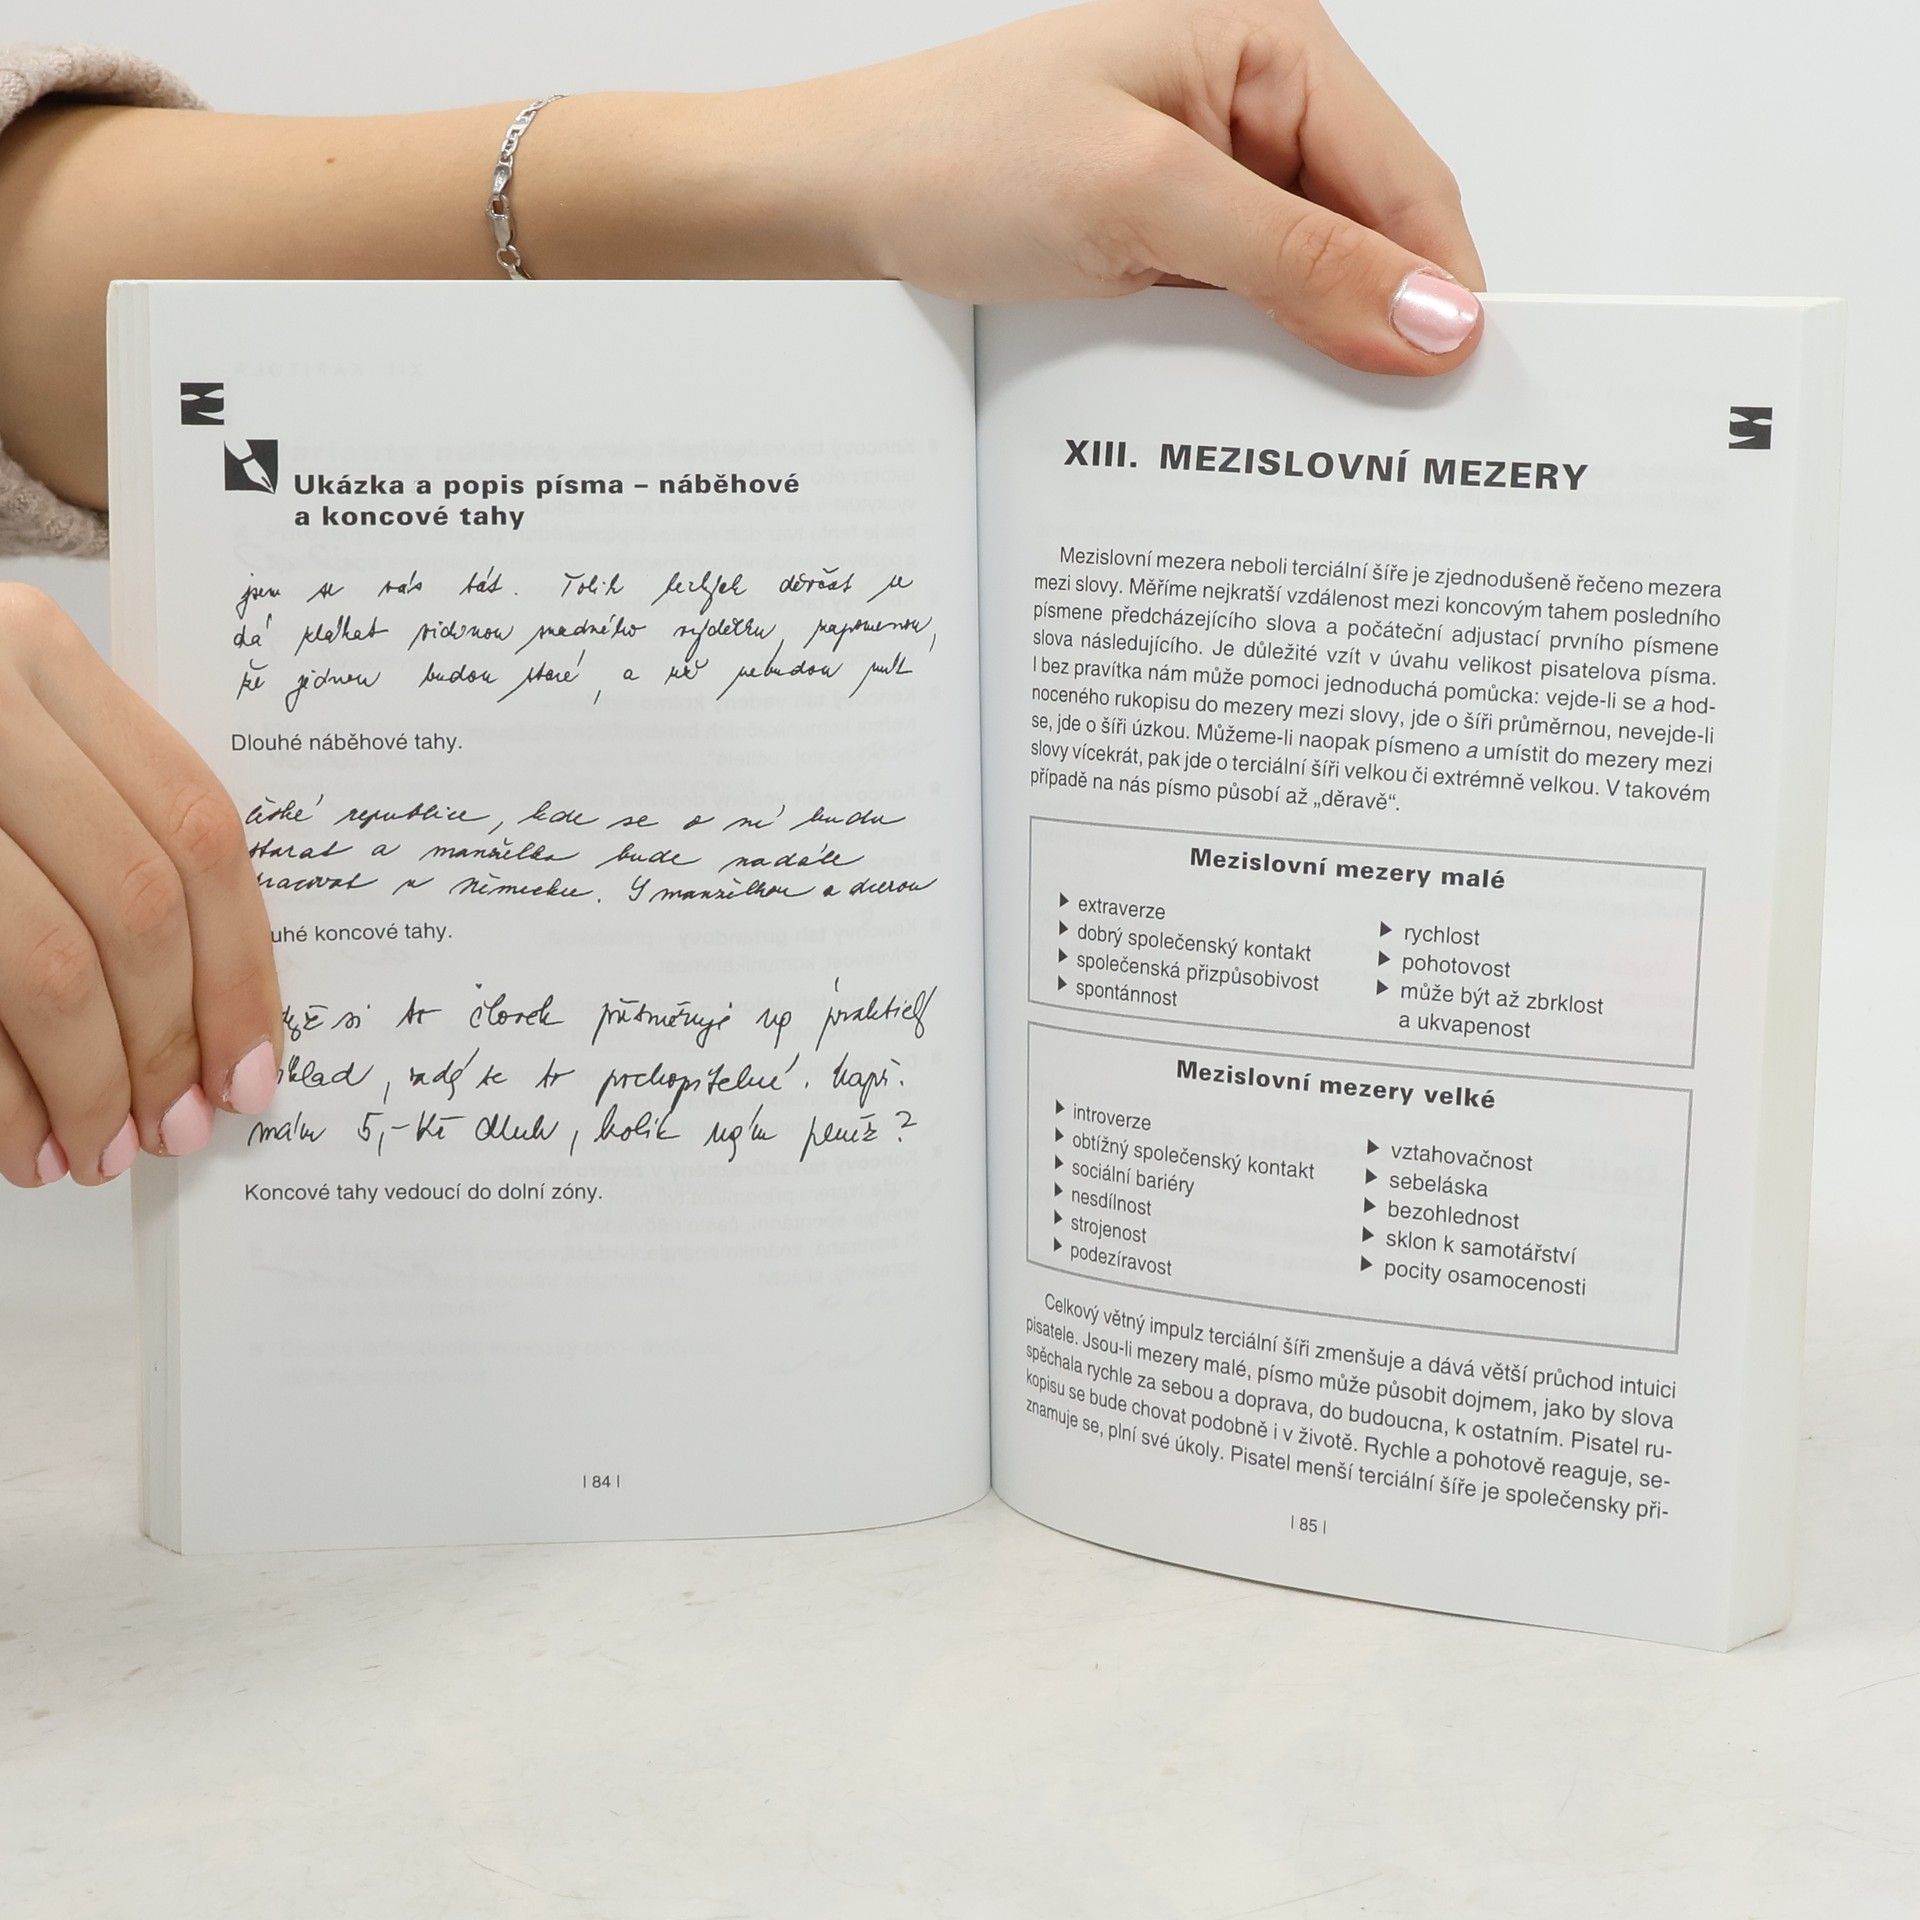 Ukázka a popis písma – náběhové
a koncové tahy
jsem se vás tát. Tolik hezkých děvčat se
dá plákat vidinou snadného výdělku, zapomenou,
že jednou budou staré, a už nebudou mít
Dlouhé náběhové tahy.
české republice, kde se o ní budu
starat a manželka bude nadále
pracovat v Německu. S manželkou a dcerou
uhé koncové tahy.
si to člověk přirovnává na praktický
, zdá se to pochopitelné. Např.
mám 5,- Kč dluh, kolik mám peněz?
Koncové tahy vedoucí do dolní zóny.
| 84 |
XIII. MEZISLOVNÍ MEZERY
Mezislovní mezera neboli terciální šíře je zjednodušeně řečeno mezera
mezi slovy. Měříme nejkratší vzdálenost mezi koncovým tahem posledního
písmene předcházejícího slova a počáteční adjustací prvního písmene
slova následujícího. Je důležité vzít v úvahu velikost pisatelova písma.
I bez pravítka nám může pomoci jednoduchá pomůcka: vejde-li se a hod-
noceného rukopisu do mezery mezi slovy, jde o šíři průměrnou, nevejde-li
se, jde o šíři úzkou. Můžeme-li naopak písmeno a umístit do mezery mezi
slovy vícekrát, pak jde o terciální šíři velkou či extrémně velkou. V takovém
případě na nás písmo působí až „děravě“.
Mezislovní mezery malé
extraverze
dobrý společenský kontakt
společenská přizpůsobivost
spontánnost
rychlost
pohotovost
může být až zbrklost
a ukvapenost
Mezislovní mezery velké
introverze
obtížný společenský kontakt
sociální bariéry
nesdílnost
strojenost
podezíravost
vztahovačnost
sebeláska
bezohlednost
sklon k samotářství
pocity osamocenosti
Celkový větný impulz terciální šíři zmenšuje a dává větší průchod intuici
pisatele. Jsou-li mezery malé, písmo může působit dojmem, jako by slova
spěchala rychle za sebou a doprava, do budoucna, k ostatním. Pisatel ru-
kopisu se bude chovat podobně i v životě. Rychle a pohotově reaguje, se-
znamuje se, plní své úkoly. Pisatel menší terciální šíře je společensky při-
| 85 |